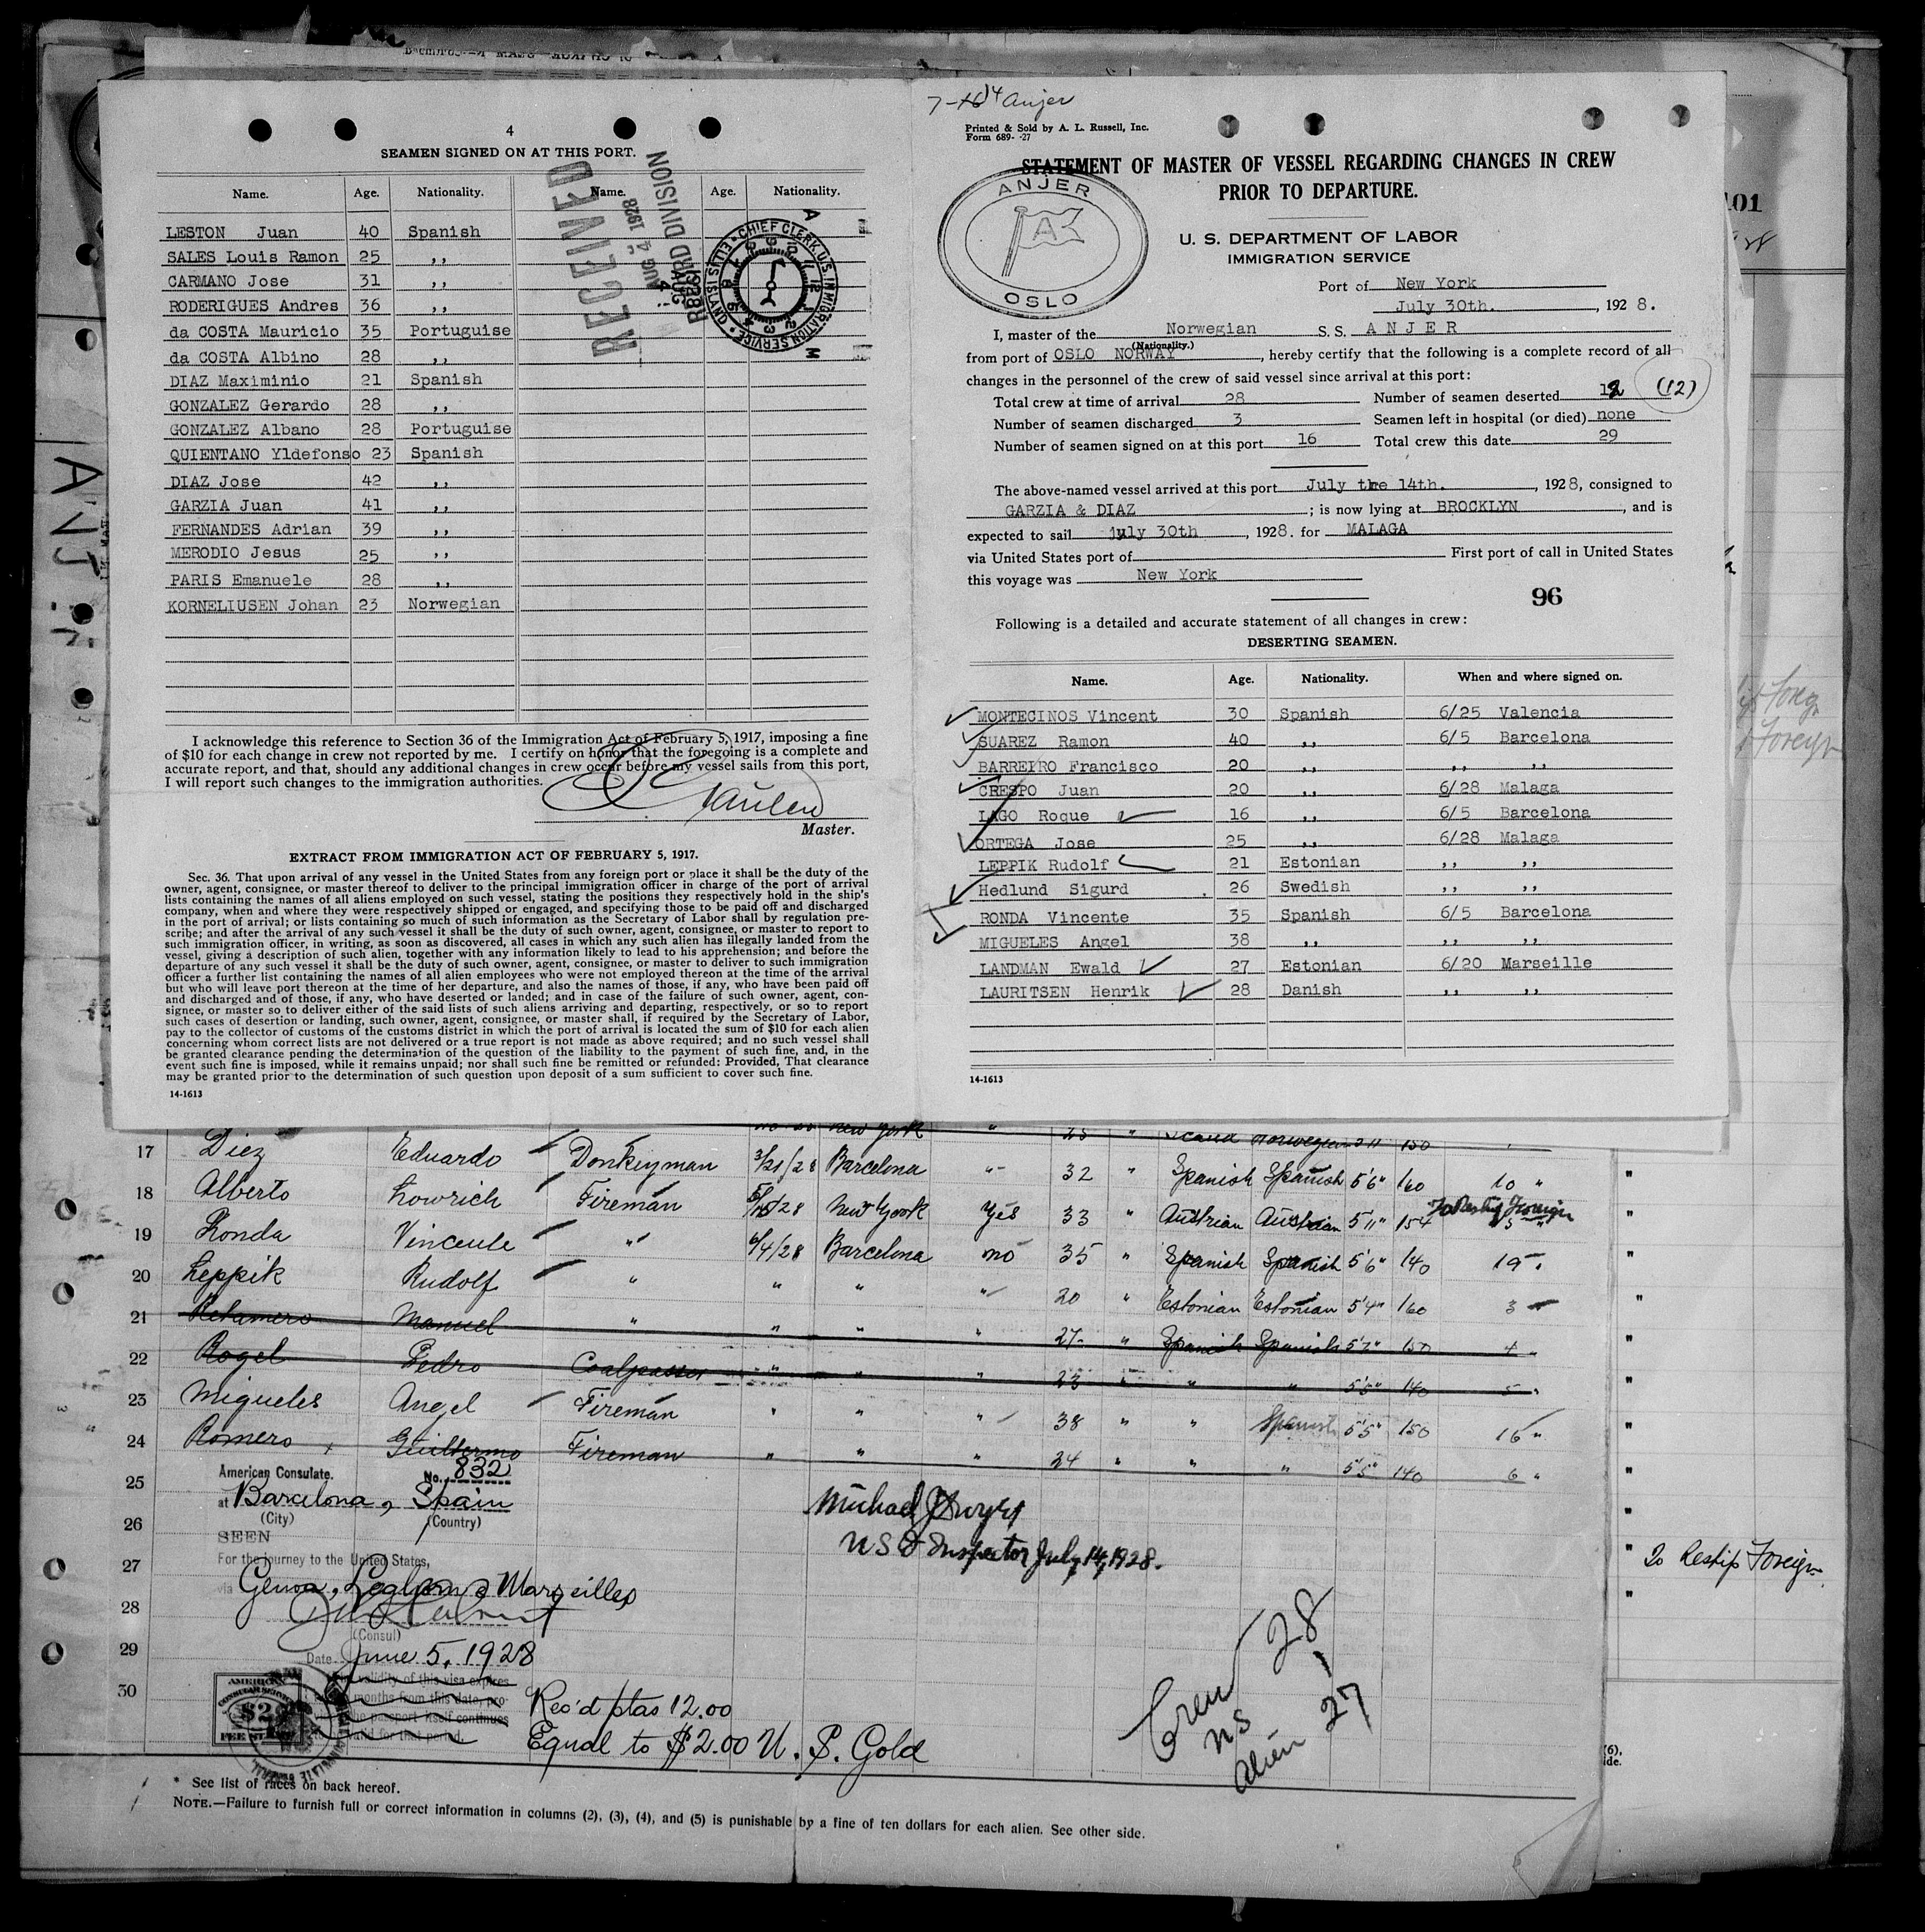 4
SEAMEN SIGNED ON AT THIS PORT.
Name. Age. Nationality. Name. Age. Nationality.
LESTON Juan 40 Spanish
SALES Louis Ramon 25 ,,
CARMANO Jose 31 ,,
RODERIGUES Andres 36 ,,
da COSTA Mauricio 35 Portuguise
da COSTA Albino 28 ,,
DIAZ Maximinio 21 Spanish
GONZALEZ Gerardo 28 ,,
GONZALEZ Albano 28 Portuguise
QUIENTANO Yldefonso 23 Spanish
DIAZ Jose 42 ,,
GARZIA Juan 41 ,,
FERNANDES Adrian 39 ,,
MERODIO Jesus 25 ,,
PARIS Emanuele 28 ,,
KORNELIUSEN Johan 23 Norwegian
RECEIVED
AUG 4 1928
RECORD DIVISION
CHIEF CLERK, U.S. IMMIGRATION SERVICE ELLIS ISLAND
I acknowledge this reference to Section 36 of the Immigration Act of February 5, 1917, imposing a fine
of $10 for each change in crew not reported by me. I certify on honor that the foregoing is a complete and
accurate report, and that, should any additional changes in crew occur before my vessel sails from this port,
I will report such changes to the immigration authorities.
Master.
EXTRACT FROM IMMIGRATION ACT OF FEBRUARY 5, 1917.
Sec. 36. That upon arrival of any vessel in the United States from any foreign port or place it shall be the duty of the
owner, agent, consignee, or master thereof to deliver to the principal immigration officer in charge of the port of arrival
lists containing the names of all aliens employed on such vessel, stating the positions they respectively hold in the ship's
company, when and where they were respectively shipped or engaged, and specifying those to be paid off and discharged
in the port of arrival; or lists containing so much of such information as the Secretary of Labor shall by regulation pre-
scribe; and after the arrival of any such vessel it shall be the duty of such owner, agent, consignee, or master to report to
such immigration officer, in writing, as soon as discovered, all cases in which any such alien has illegally landed from the
vessel, giving a description of such alien, together with any information likely to lead to his apprehension; and before the
departure of any such vessel it shall be the duty of such owner, agent, consignee, or master to deliver to such immigration
officer a further list containing the names of all alien employees who were not employed thereon at the time of the arrival
but who will leave port thereon at the time of her departure, and also the names of those, if any, who have been paid off
and discharged and of those, if any, who have deserted or landed; and in case of the failure of such owner, agent, con-
signee, or master so to deliver either of the said lists of such aliens arriving and departing, respectively, or so to report
such cases of desertion or landing, such owner, agent, consignee, or master shall, if required by the Secretary of Labor,
pay to the collector of customs of the customs district in which the port of arrival is located the sum of $10 for each alien
concerning whom correct lists are not delivered or a true report is not made as above required; and no such vessel shall
be granted clearance pending the determination of the question of the liability to the payment of such fine, and, in the
event such fine is imposed, while it remains unpaid; nor shall such fine be remitted or refunded: Provided, That clearance
may be granted prior to the determination of such question upon deposit of a sum sufficient to cover such fine.
14-1613
Anjer
Printed & Sold by A. L. Russell, Inc.
Form 689- -27
STATEMENT OF MASTER OF VESSEL REGARDING CHANGES IN CREW
PRIOR TO DEPARTURE.
ANJER
A
OSLO
U. S. DEPARTMENT OF LABOR
IMMIGRATION SERVICE
Port of New York
July 30th. , 192 8.
I, master of the Norwegian S. S. A N J E R
(Nationality.)
from port of OSLO NORWAY , hereby certify that the following is a complete record of all
changes in the personnel of the crew of said vessel since arrival at this port:
Total crew at time of arrival 28 Number of seamen deserted 12 (12)
Number of seamen discharged 3 Seamen left in hospital (or died) none
Number of seamen signed on at this port 16 Total crew this date 29
The above-named vessel arrived at this port July the 14th. , 1928, consigned to
GARZIA & DIAZ ; is now lying at BROCKLYN , and is
expected to sail july 30th , 1928. for MALAGA
via United States port of First port of call in United States
this voyage was New York
96
Following is a detailed and accurate statement of all changes in crew:
DESERTING SEAMEN.
Name. Age. Nationality. When and where signed on.
MONTECINOS Vincent 30 Spanish 6/25 Valencia
SUAREZ Ramon 40 ,, 6/5 Barcelona
BARREIRO Francisco 20 ,, ,, ,,
CRESPO Juan 20 ,, 6/28 Malaga
LAGO Roque 16 ,, 6/5 Barcelona
ORTEGA Jose 25 ,, 6/28 Malaga
LEPPIK Rudolf 21 Estonian ,, ,,
Hedlund Sigurd 26 Swedish ,, ,,
RONDA Vincente 35 Spanish 6/5 Barcelona
MIGUELES Angel 38 ,, ,, ,,
LANDMAN Ewald 27 Estonian 6/20 Marseille
LAURITSEN Henrik 28 Danish ,, ,,
14-1613
17 Diez Eduardo Donkeyman 3/21/28 Barcelona " 32 " Spanish Spanish 5'6" 160 10 "
18 Alberto Lowrich Fireman 28 New York Yes 33 " Austrian Austrian 5'11" 154 5 To Reship Foreign
19 Ronda Vincente " 6/4/28 Barcelona no 35 " Spanish Spanish 5'6" 140 19 "
20 Leppik Rudolf " " " " 20 " Estonian Estonian 5'4" 160 3 "
21 Retamero Manuel " " " " 27 " Spanish Spanish 5'7" 150 4 "
22 Rogel Pedro Coalpasser " " " 23 " " " 5'5" 140 5 "
23 Migueles Angel Fireman " " " 38 " " Spanish 5'5" 150 16 "
24 Romero Guillermo Fireman " " " 24 " " " 5'5" 140 6 "
25 American Consulate. No. 832
at Barcelona, Spain
(City) (Country)
26 SEEN
27 For the journey to the United States,
via Genoa, Leghorn & Marseilles
28
(Consul)
29 Date June 5, 1928
validity of this visa expires
months from this date, pro-
passport itself continues
valid for that period.
30
AMERICAN
CONSULAR SERVICE
$2
FEE STAMP
Rec'd ptas 12.00
Equal to $2.00 U. S. Gold
Michael J Dwyer
U S I Inspector July 14, 1928.
Crew 28
US 1
Alien 27
To Reship Foreign
101
ANJER
* See list of races on back hereof.
NOTE.—Failure to furnish full or correct information in columns (2), (3), (4), and (5) is punishable by a fine of ten dollars for each alien. See other side.